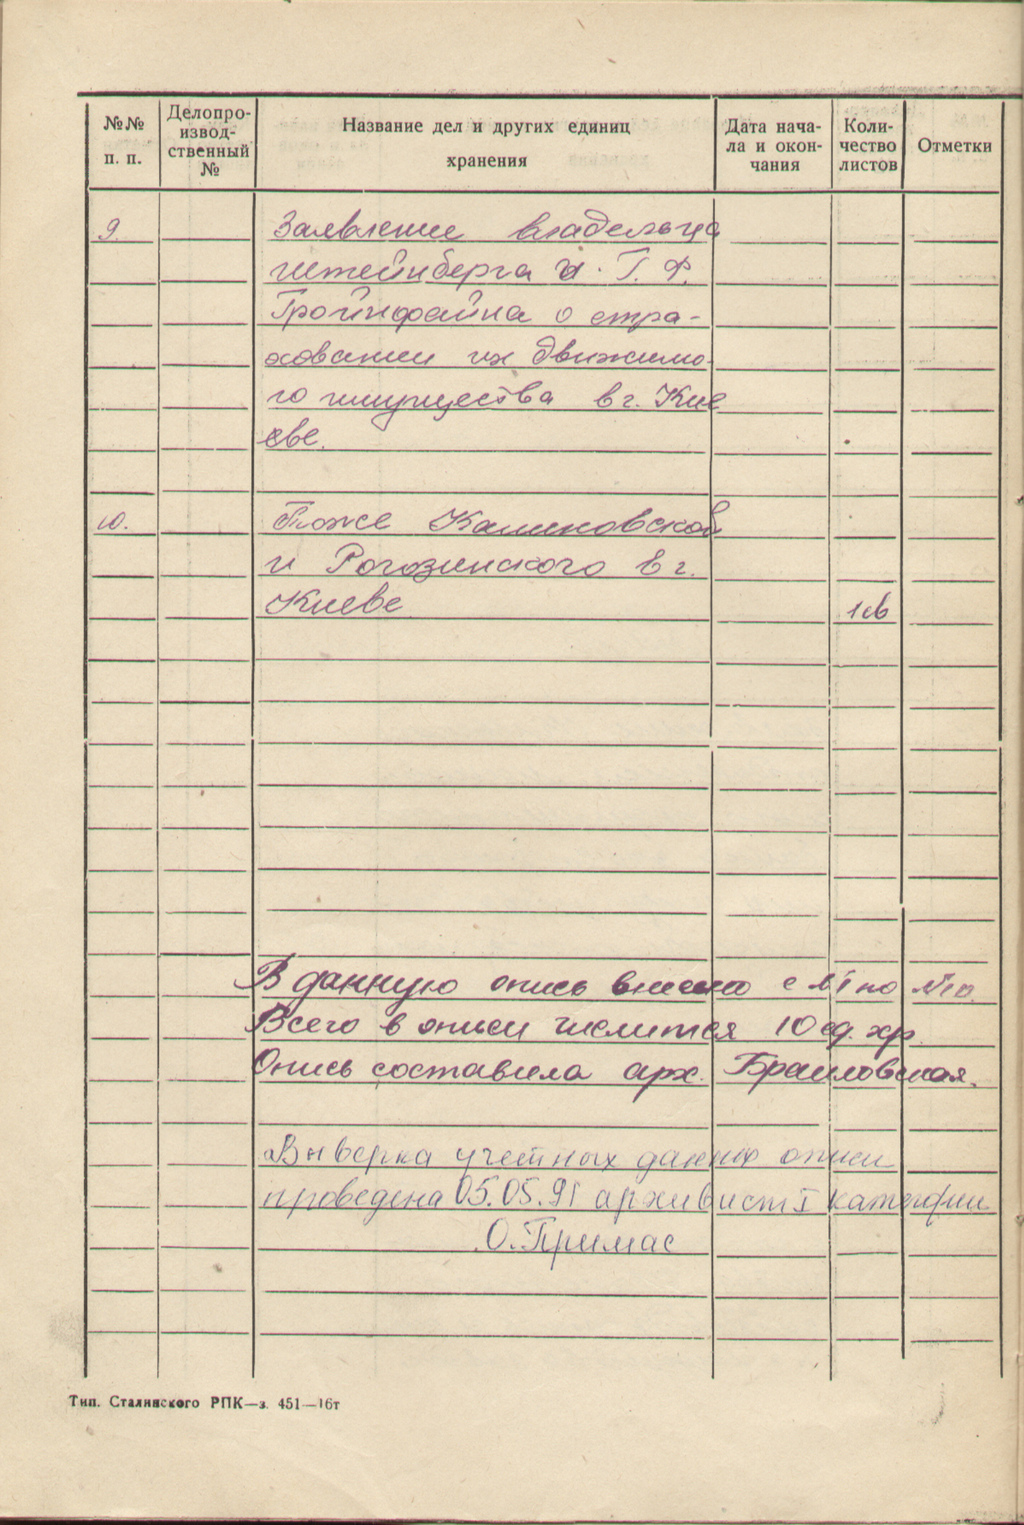 №№ п. п.
Делопро-
извод-
ственный
№
Название дел и других единиц
хранения
Дата нача-
ла и окон-
чания
Коли-
чество
листов
Отметки
9. Заявление владельца
Штейнберга И. Г. Ф.
Гройнфайна о стра-
ховании их движимо-
го имущества в г. Кие
еве.
10. Тоже Калиновской
и Рогозинского в г.
Киеве
В данную опись внесено с №1 по №10.
Всего в описи числится 10 ед. хр.
Опись составила арх. Браиловская.
Выверка учетных данных описи
проведена 05.05.91 архивист I категории
О. Примас
Тип. Сталинского РПК—з. 451—16т